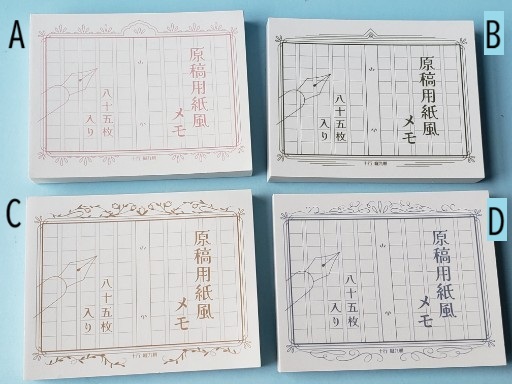 A
原稿用紙風
メモ
八十五枚
入り
B
原稿用紙風
メモ
八十五枚
入り
C
原稿用紙風
メモ
八十五枚
入り
D
原稿用紙風
メモ
八十五枚
入り